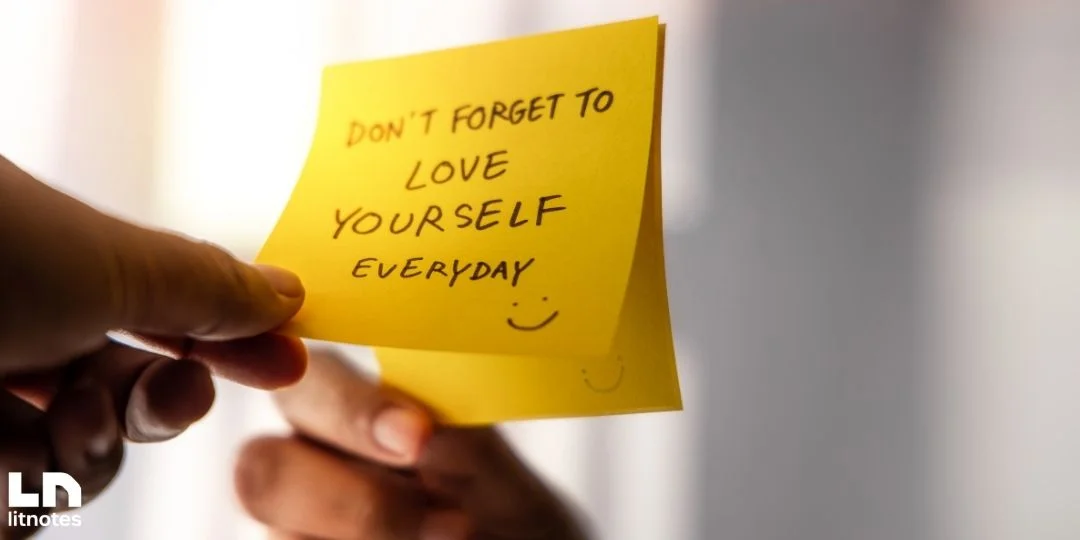 DON'T FORGET TO
LOVE
YOURSELF
EVERYDAY
LN
litnotes